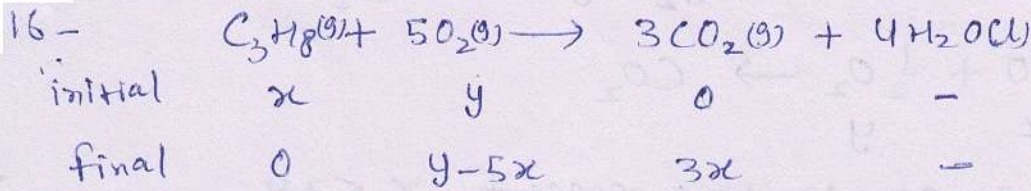 16- C₃H₈(g)+ 5O₂(g) ⟶ 3CO₂(g) + 4H₂O(l)
initial x y 0 -
final 0 y-5x 3x -